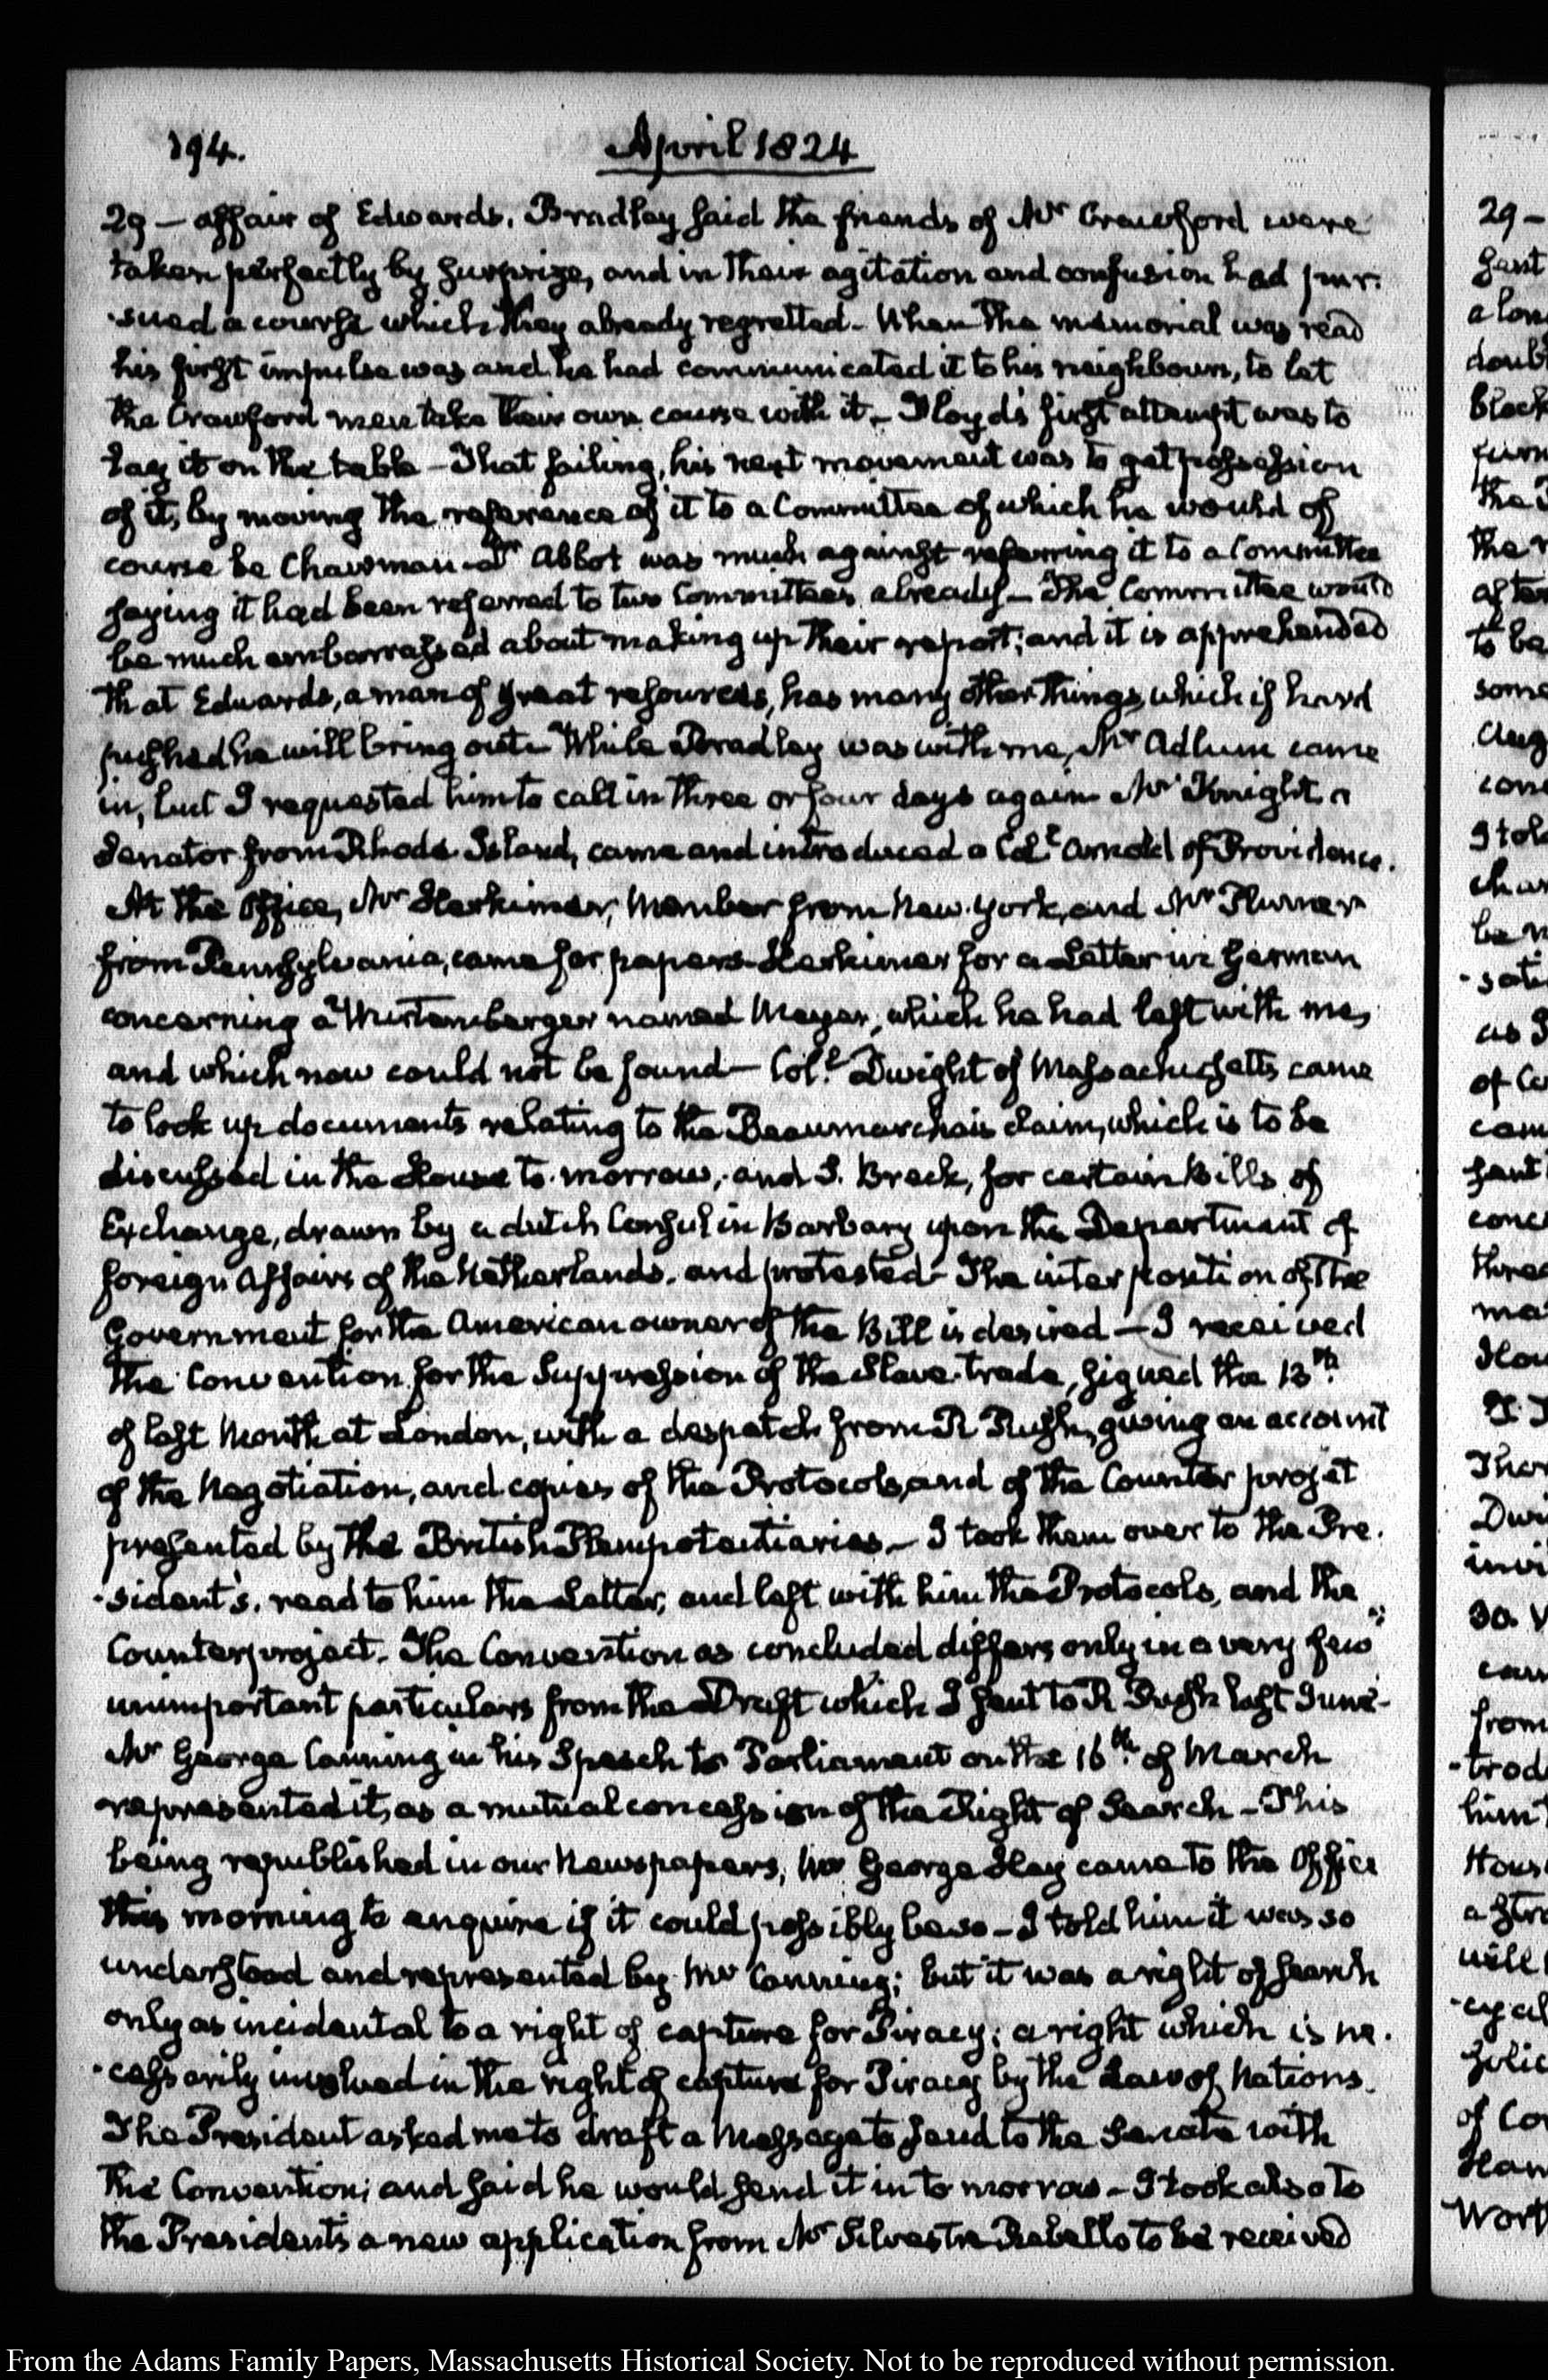 194.
April 1824
29 — affair of Edwards. Bradley said the friends of Mr Crawford were
taken perfectly by surprize, and in their agitation and confusion had pur-
-sued a course which they already regretted — When the memorial was read
his first impulse was and he had communicated it to his neighbours, to let
the Crawford men take their own course with it — Floyd's first attempt was to
lay it on the table — That failing, his next movement was to get possession
of it, by moving the reference of it to a Committee of which he would of
course be Chairman — Abbot was much against referring it to a Committee
saying it had been referred to two Committees already — The Committee would
be much embarrassed about making up their report; and it is apprehended
that Edwards, a man of great resources, has many other things, which if hard
pushed he will bring out — While Bradley was with me, Mr Adlum came
in, but I requested him to call in three or four days again Mr Knight a
Senator from Rhode Island, came and introduced a Colt. Arnold of Providence.
At the Office, Mr Herkimer, Member from New-York, and Mr Plumer
from Pennsylvania, came for papers — Herkimer for a Letter in German
concerning a Wurtemberger named Meyer, which he had left with me,
and which now could not be found — Coll. Dwight of Massachusetts came
to look up documents relating to the Beaumarchais claim, which is to be
discussed in the House to-morrow, and S. Breck, for certain Bills of
Exchange, drawn by a dutch Consul in Barbary upon the Department of
foreign Affairs of the Netherlands, and protested — The interposition of the
Government for the American owner of the Bill is desired — I received
the Convention for the Suppression of the Slave-trade, signed the 13th.
of last Month at London, with a despatch from R Rush, giving an account
of the Negotiation, and copies of the Protocols, and of the Counter projet
presented by the British Plenipotentiaries — I took them over to the Pre-
-sident's. read to him the Letter, and left with him the Protocols, and the
Counterproject. The Convention as concluded differs only in a very few
unimportant particulars from the Draft which I sent to R Rush last June —
Mr George Canning in his Speech to Parliament on the 16th. of March
represented it, as a mutual concession of the Right of Search — This
being republished in our Newspapers, Mr George Hay came to the Office
this morning to enquire if it could possibly be so — I told him it was so
understood and represented by Mr Canning; but it was a right of search
only as incidental to a right of capture for Piracy; a right which is ne-
-cessarily involved in the right of capture for Piracy by the Law of Nations.
The President asked me to draft a Message to send to the Senate with
the Convention; and said he would send it in to morrow — I took also to
the President's a new application from Mr Silvestre Rebello to be received
29 —
From the Adams Family Papers, Massachusetts Historical Society. Not to be reproduced without permission.